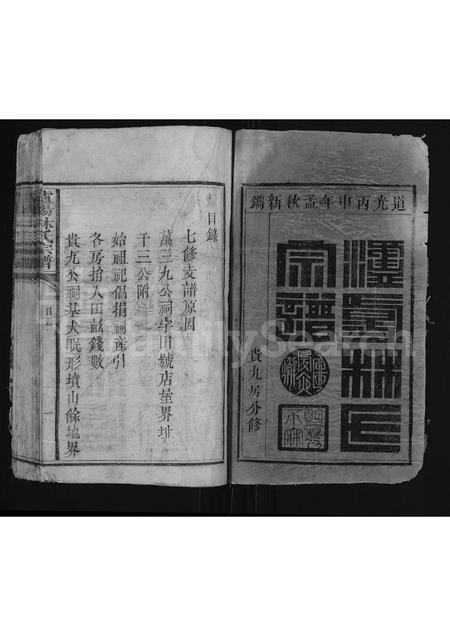 道光丙申年孟秋新鐫
林氏
宗譜
貴九房分修
目錄
七修支譜原因
萬三九公祠宇田號店屋界址
千三公附
始祖祀倡捐祠產引
各房捨入田畝錢數
貴九公祠基犬眠形墳山餘地界
林氏宗譜
目錄
一
FamilySearch